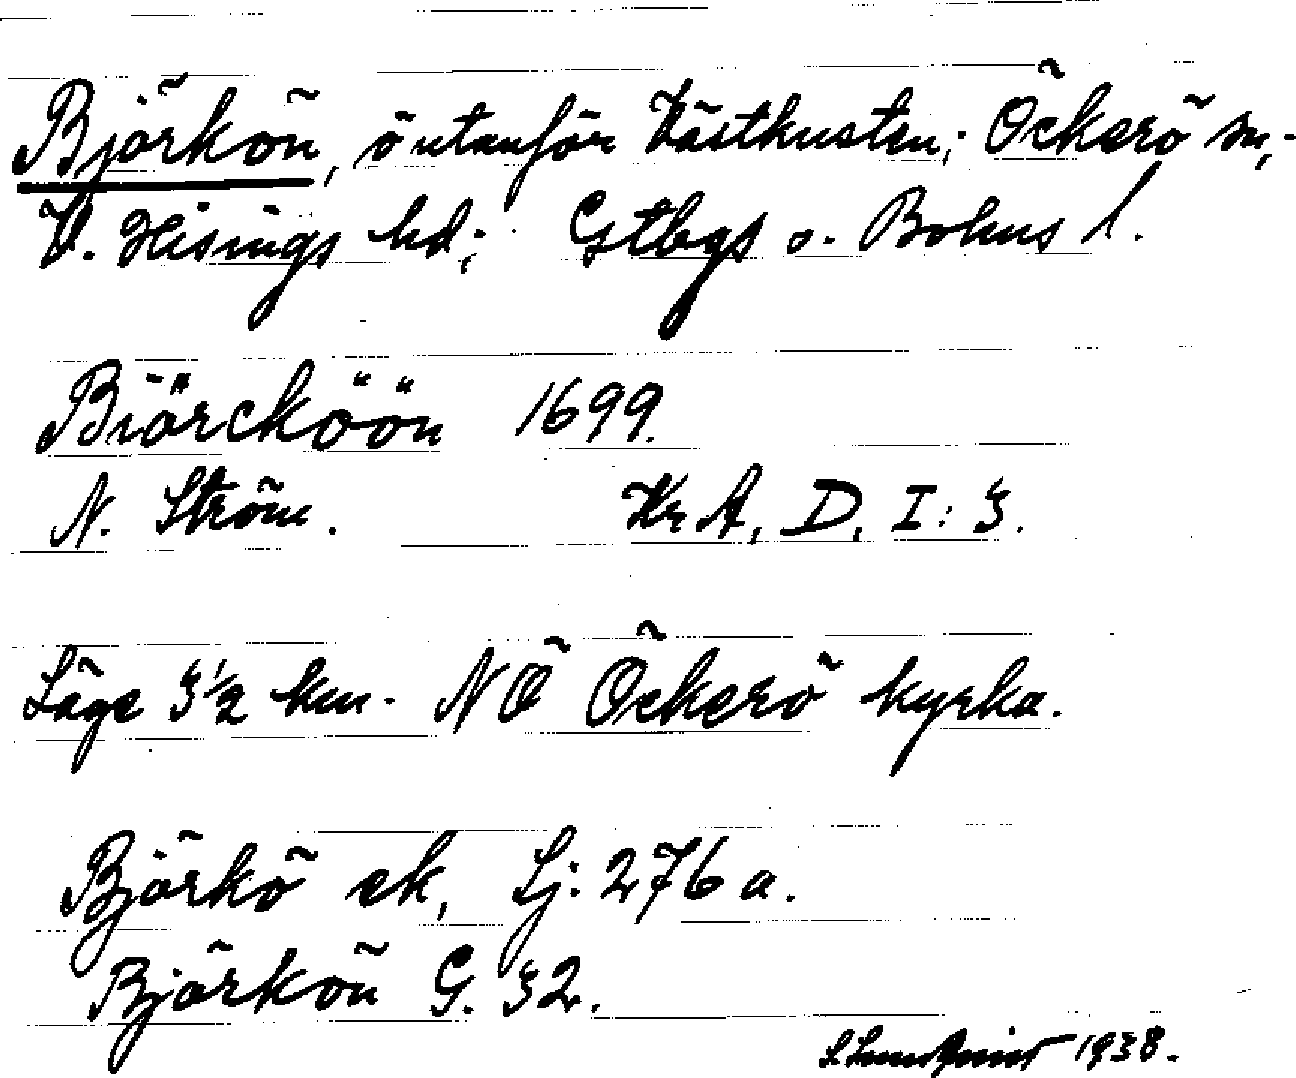 Björkön, ö utanför Västkusten; Öckerö sn,
V. Hisings hd; Gtbgs o. Bohus l.
Biörcköön 1699.
N. Ström. Kr A, D, I: 3.
Läge 3 1/2 km. NÖ Öckerö kyrka.
Björkö ek, Lj: 276 a.
Björkön G. 32.
S. Lundqvist 1938.